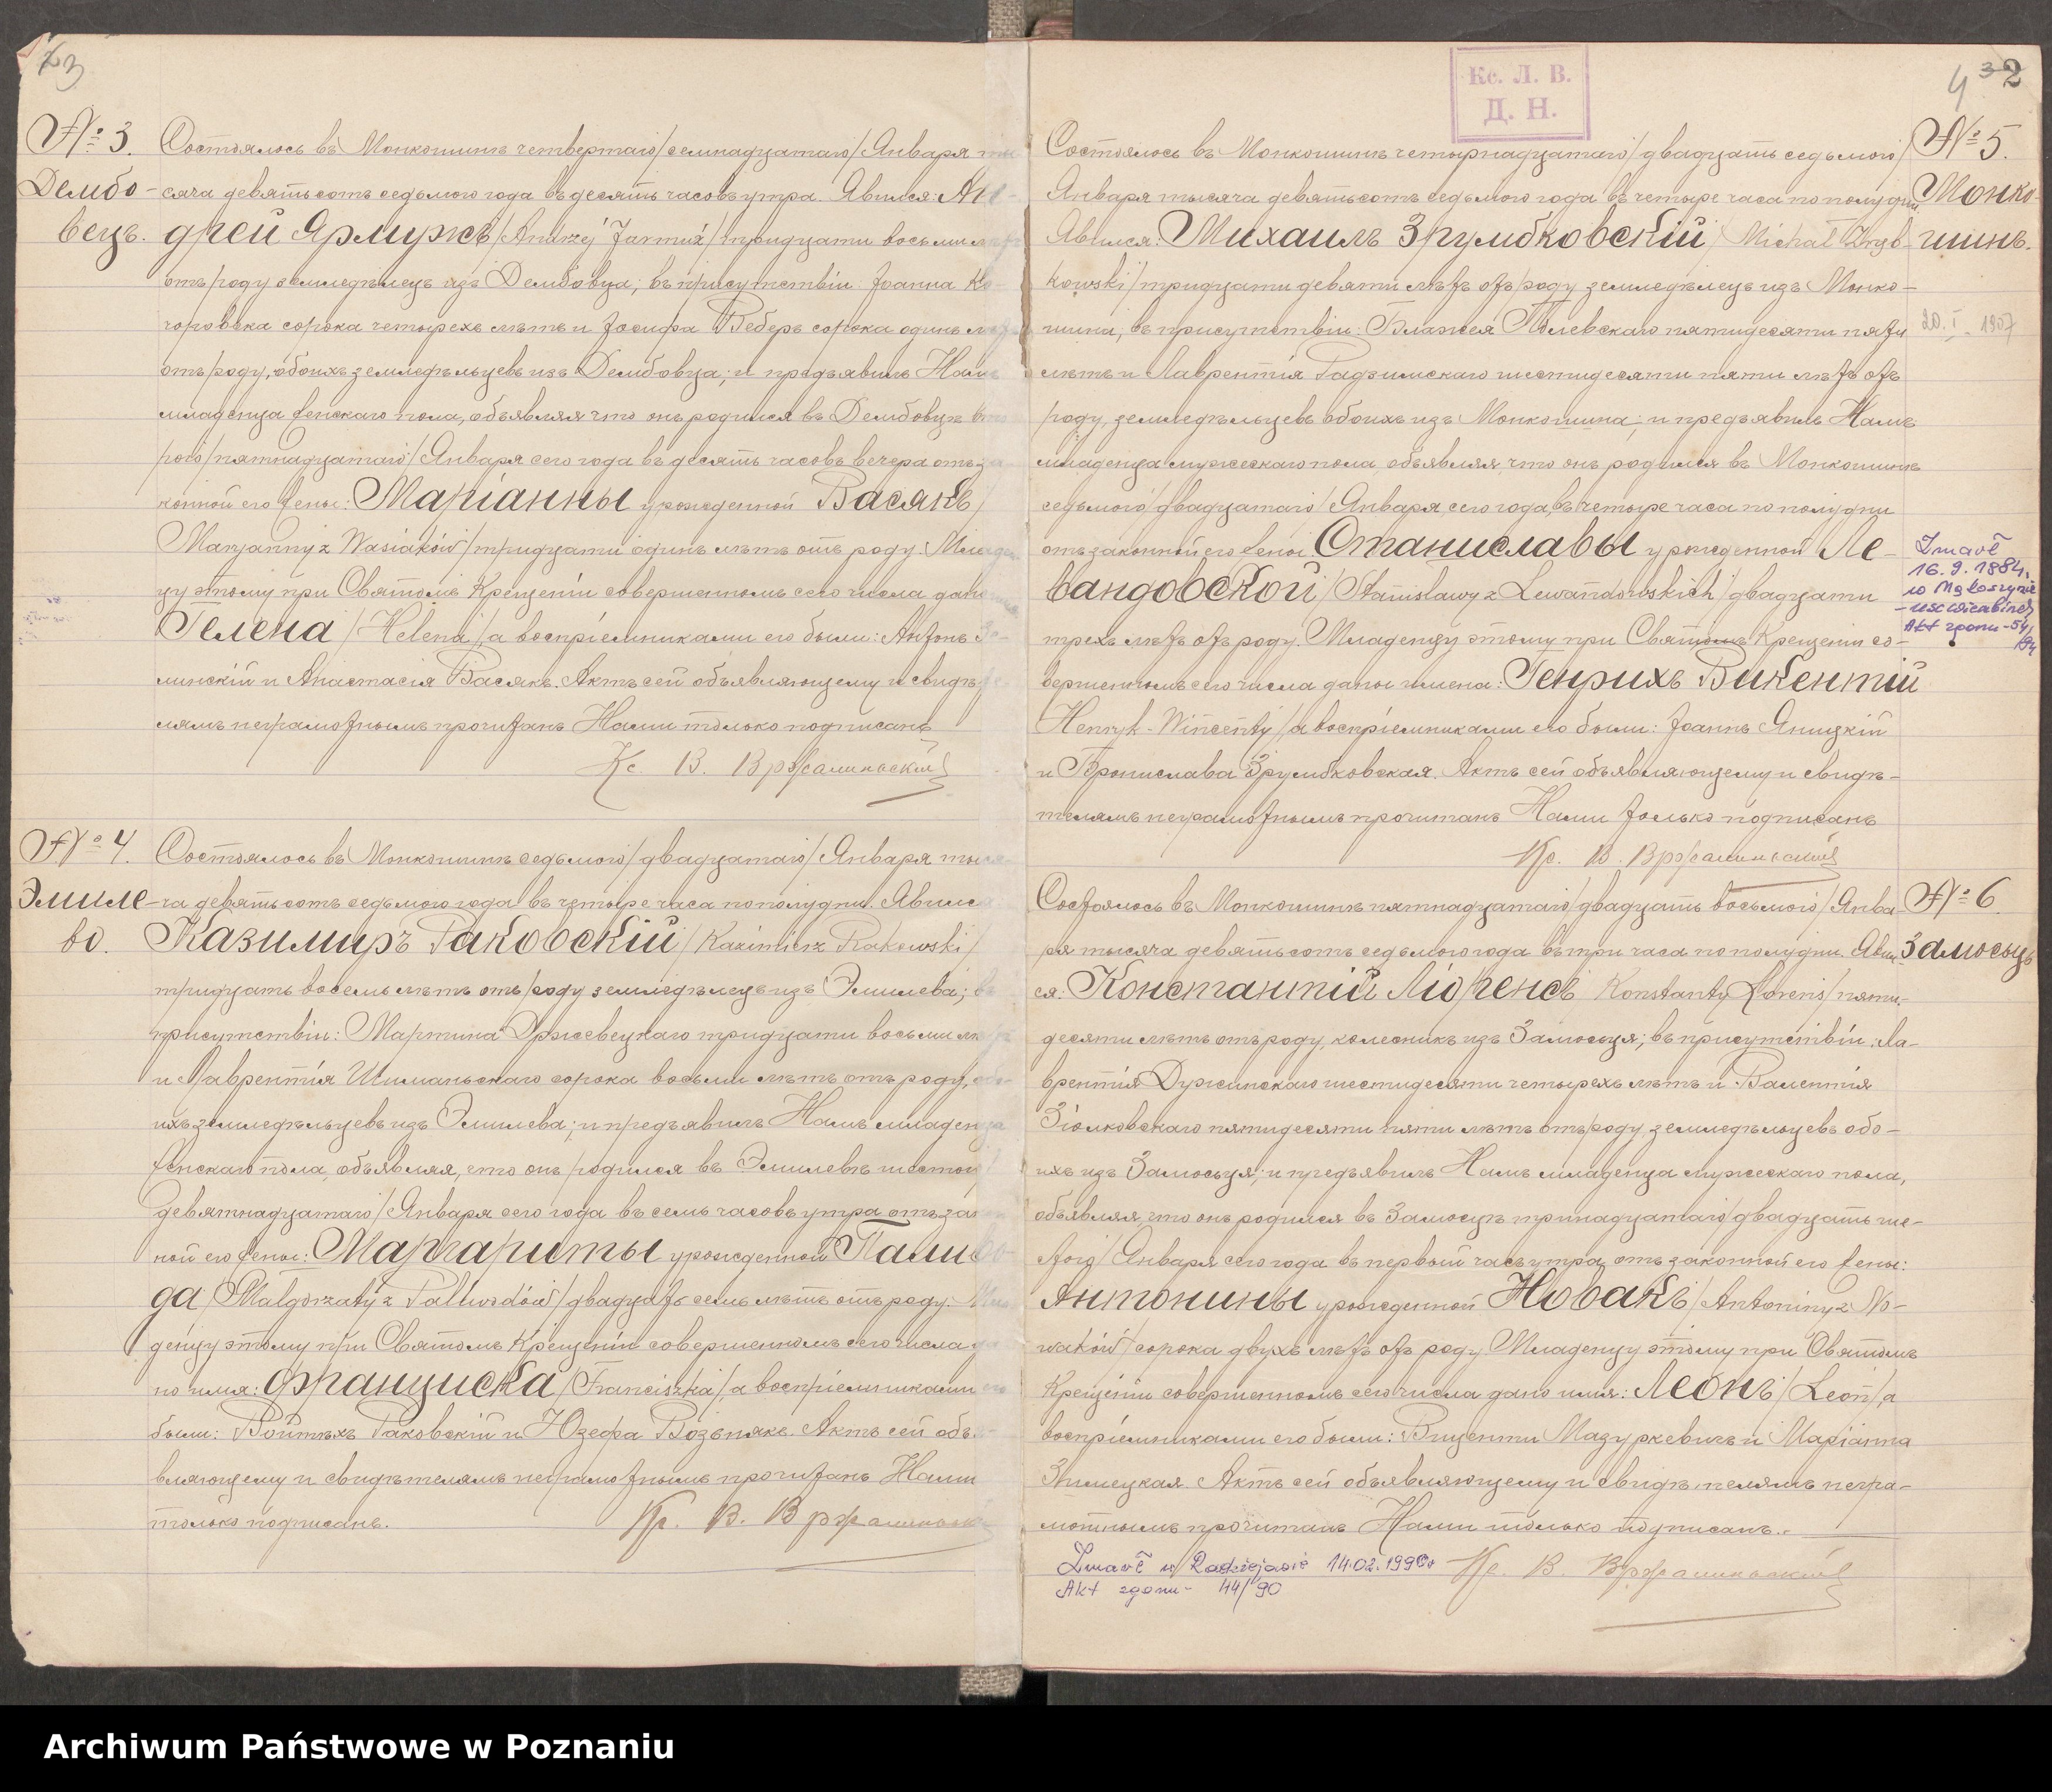 3
№ 3.
Дембо-
вецъ.
Состоялось въ Монкошинѣ четвертаго/семнадцатаго/Января ты
сяча девятьсотъ седьмого года въ десять часовъ утра. Явился: Ан-
дрей Ярмужъ /Andrzej Jarmuż/ тридцати восьми лѣтъ
отъ роду земледѣлецъ изъ Дембовца; въ присутствіи Іоанна Ко-
сорока четырехъ лѣтъ и Іосифа Веберъ сорока одинъ
отъ роду, обоихъ земледѣльцевъ изъ Дембовца; и предъявилъ Намъ
младенца женскаго пола, объявляя что онъ родился въ Дембовцѣ вто
рого/пятнадцатаго/Января сего года въ десять часовъ вечера отъ за
конной его жены: Маріанны урожденной Васякъ/
Maryanny z Wasiaków/тридцати одинъ лѣтъ отъ роду. Младен
цу этому при Святомъ Крещеніи совершенномъ сего числа дано
Гелена /Helena/, а воспріемниками его были: Антонъ
линскій и Анастасія Васякъ. Актъ сей объявляющему и свидѣте
лямъ неграмотнымъ прочитанъ Нами только подписанъ
Кс. В.
№ 4.
Эмиле-
во.
Состоялось въ Монкошинѣ седьмого/двадцатаго/Января тыся
ча девятьсотъ седьмого года въ четыре часа по полудни. Явился
Казимиръ Раковскій /Kazimierz Rakowski/
тридцать восемь лѣтъ отъ роду земледѣлецъ изъ Эмилева; въ
присутствіи: Мартина Држевецкаго тридцати восьми лѣтъ
и Лаврентія Шиманьскаго сорока восьми лѣтъ отъ роду, обо
ихъ земледѣльцевъ изъ Эмилева; и предъявилъ Намъ младенца
женскаго пола, объявляя, что онъ родился въ Эмилевѣ шестого/
девятнадцатаго/Января сего года въ семь часовъ утра отъ закон
ной его жены: Маргариты урожденной Паливо-
да /Małgorzaty z Paliwodów/ двадцать семь лѣтъ отъ роду. Мла
денцу этому при Святомъ Крещеніи совершенномъ сего числа да
но имя: Франциска /Franciszka/, а воспріемниками его
были: Войтѣхъ Раковскій и Юзефа Возьнякъ. Актъ сей объя-
вляющему и свидѣтелямъ неграмотнымъ прочитанъ Нами
только подписанъ.
Кс. В.
Кс. Л. В.
Д. Н.
4 3 2
№ 5.
Монко-
шинъ.
Состоялось въ Монкошинѣ четырнадцатаго/двадцать седьмого/
Января тысяча девятьсотъ седьмого года въ четыре часа по полудни.
Явился: Михаилъ Зрумбковскій /Michał Zrąb-
kowski/ тридцати девяти лѣтъ отъ роду земледѣлецъ изъ Монко-
шина, въ присутствіи: Блажея пятидесяти пяти
20. I. 1907
лѣтъ и Лаврентія Радзимскаго шестидесяти пяти лѣтъ отъ
роду, земледѣльцевъ обоихъ изъ Монкошина; и предъявилъ Намъ
младенца мужескаго пола, объявляя, что онъ родился въ Монкошинѣ
седьмого/двадцатаго/Января сего года, въ четыре часа по полудни
отъ законной его жены Станиславы урожденной Ле-
вандовской /Stanisławy z Lewandowskich/ двадцати
трехъ лѣтъ отъ роду. Младенцу этому при Святомъ Крещеніи со-
вершенномъ сего числа даны имена: Генрихъ Викентій
Henryk-Wincenty/, а воспріемниками его были: Іоаннъ Яницкій
и Бронислава Зрумбковская. Актъ сей объявляющему и свидѣ-
телямъ неграмотнымъ прочитанъ Нами только подписанъ
Кс. В.
Zmarł
16.9.1984.
w Mąkoszynie
Akt zgonu - 54/
84
№ 6
Замосьць
Состоялось въ Монкошинѣ пятнадцатаго/двадцать восьмого/Янва-
ря тысяча девятьсотъ седьмого года въ три часа по полудни. Явил-
ся: Константій Ліоренсъ /Konstanty Lorens/ пяти-
десяти лѣтъ отъ роду, колесникъ изъ Замосьця; въ присутствіи: Ла-
врентія Дужинскаго шестидесяти четырехъ лѣтъ и Валентія
Зіолковскаго пятидесяти пяти лѣтъ отъ роду, земледѣльцевъ обо-
ихъ изъ Замосьця; и предъявилъ Намъ младенца мужескаго пола,
объявляя, что онъ родился въ Замосцѣ тринадцатаго/двадцать ше-
стого/Января сего года въ первый часъ утра отъ законной его жены:
Антонины урожденной Новакъ /Antoniny z No-
waków/ сорока двухъ лѣтъ отъ роду. Младенцу этому при Святомъ
Крещеніи совершенномъ сего числа дано имя: Леонъ /Leon/, а
воспріемниками его были: Вицентъ Мазуркевичъ и Маріанна
Актъ сей объявляющему и свидѣтелямъ негра-
мотнымъ прочитанъ Нами только подписанъ.
Кс. В.
Zmarł w Radziejowie 14.02.1990r
Akt zgonu - 44/90
Archiwum Państwowe w Poznaniu